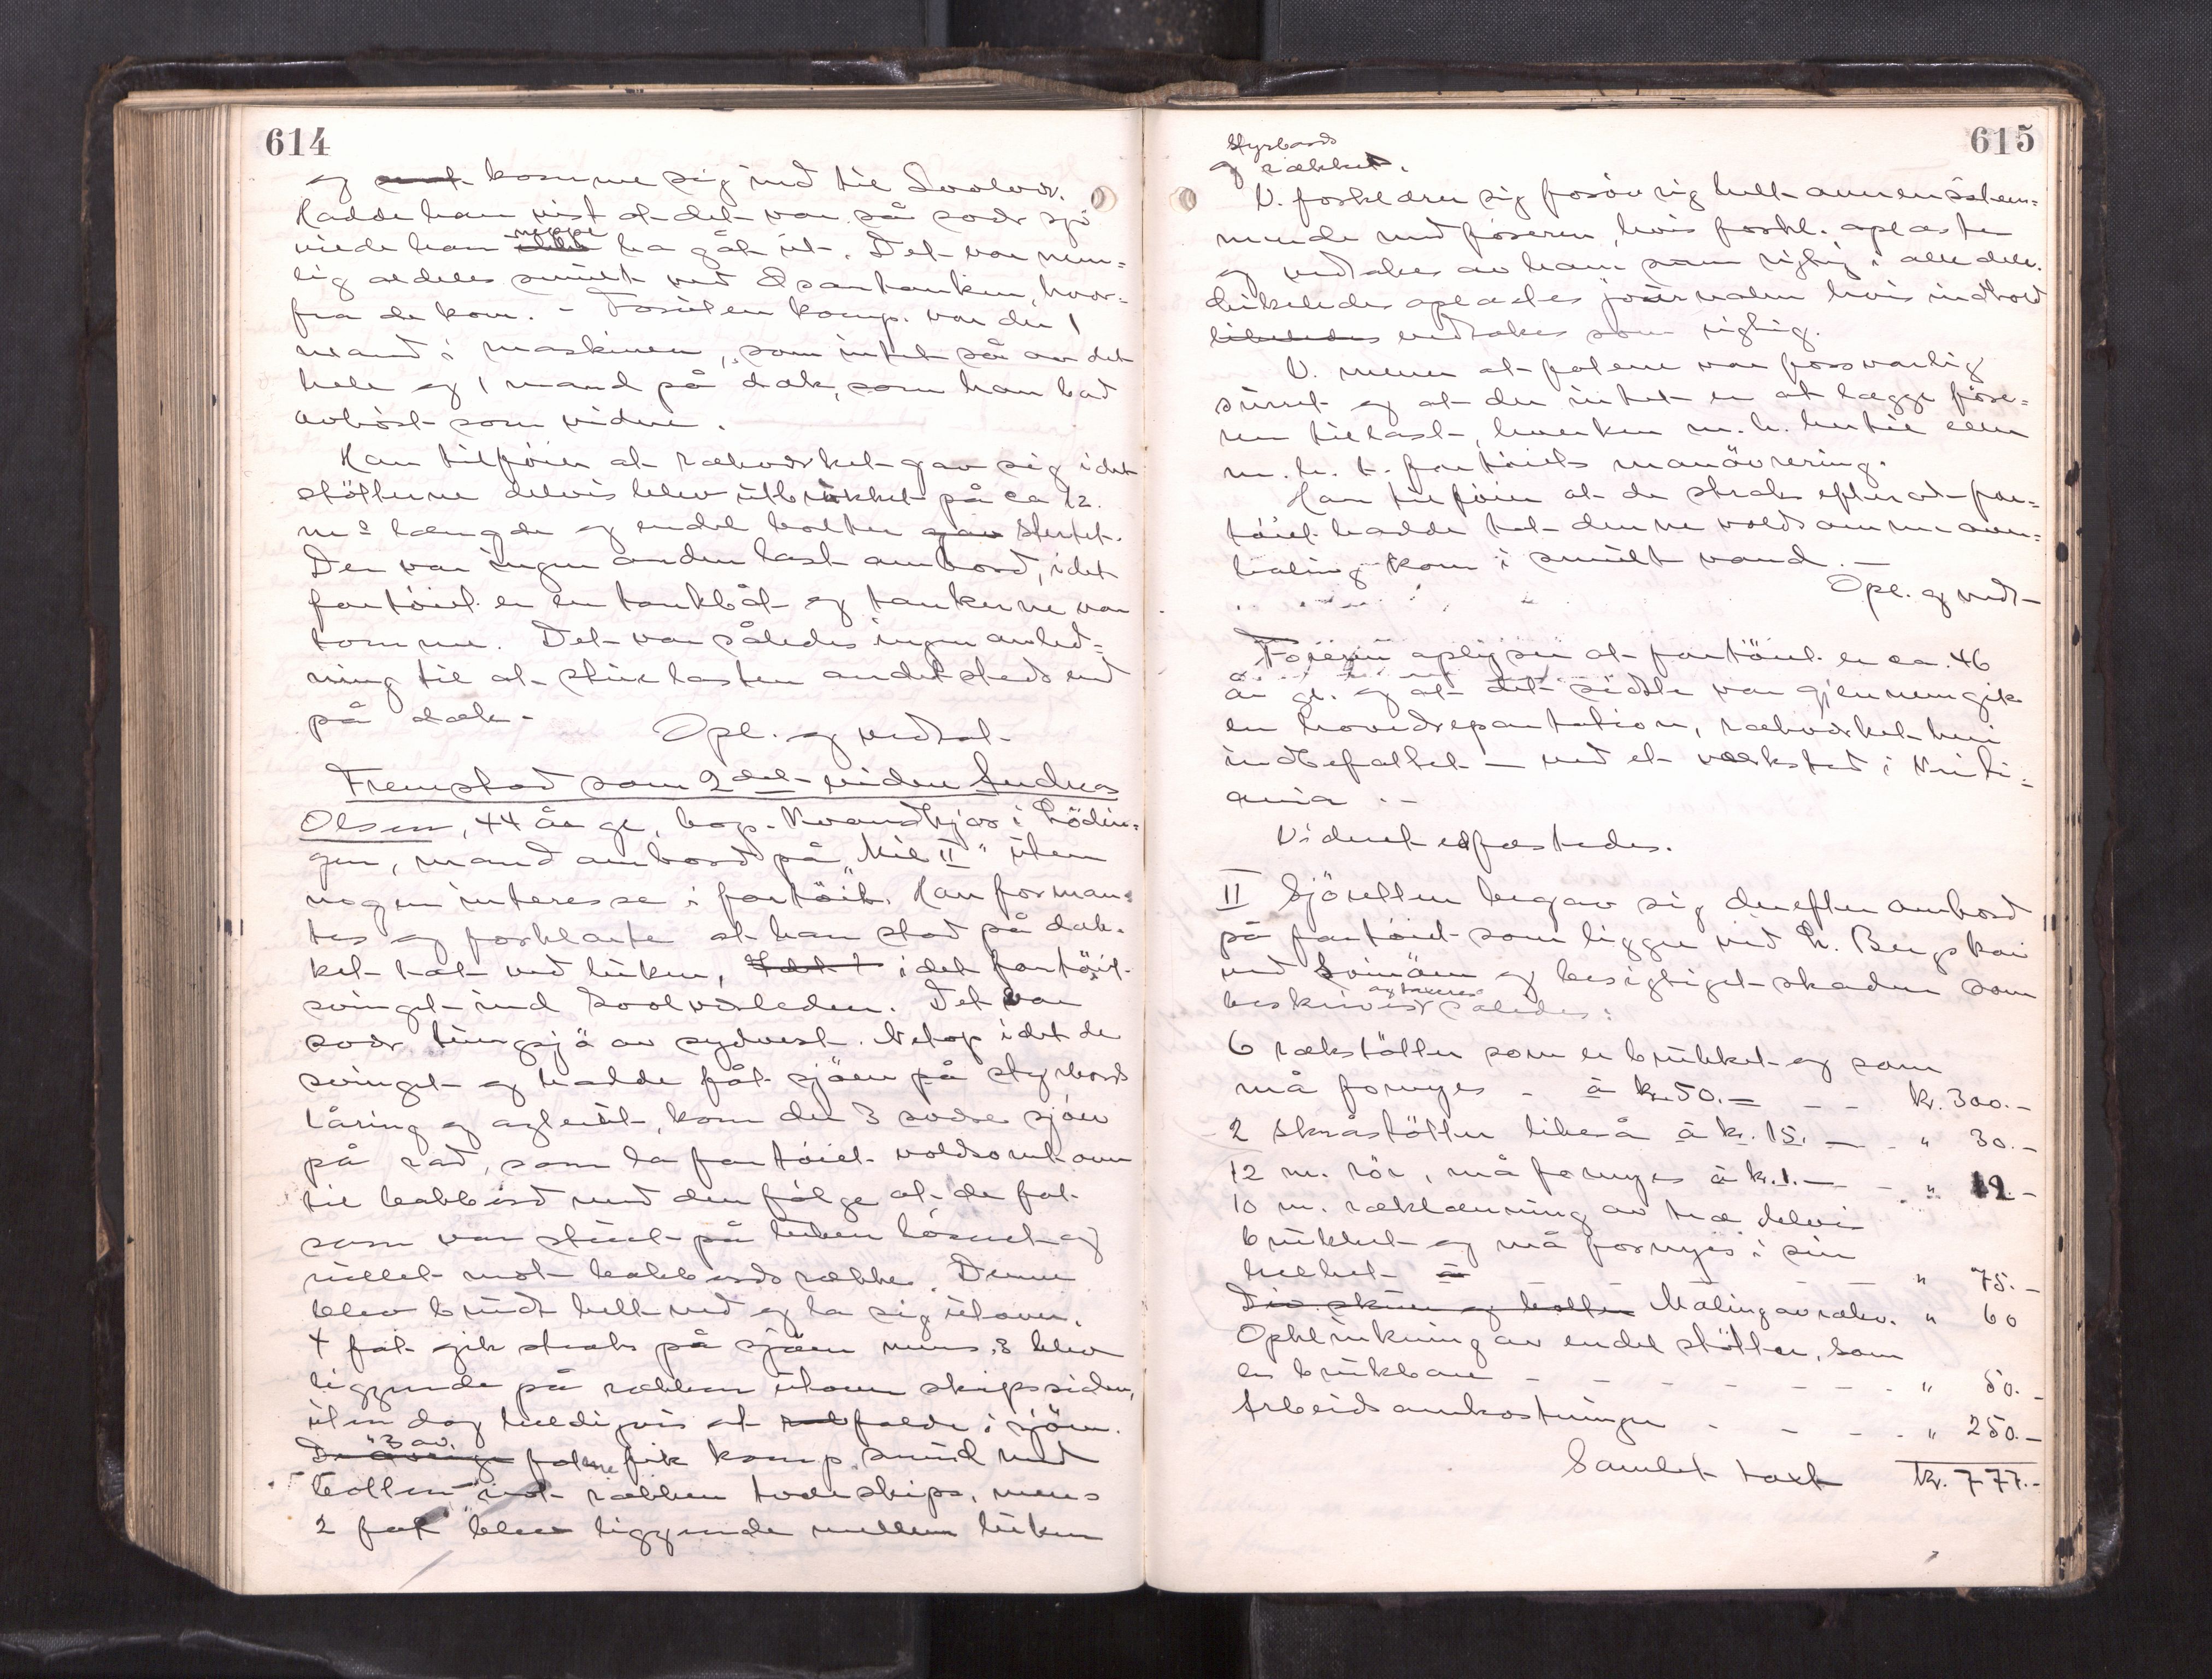 614
og komme sig ind til Svolvær.
Hadde han vist at det var så svær sjö
vilde han neppe ha gåt ut. Det var nem=
lig aldeles smult ved Osantanken, hvor=
fra de kom. - Foruten komp. var der 1
mand i maskinen, som intet så av det
hele og 1 mand på dæk, som han bad
avhört som vidne.
Han tilföier at rækverket gav sig idet
stötterne delvis blev utbrukket på ca 12
m's længde og endel bolter gav slertet.
Der var ingen anden last ombord, idet
fartöiet er en tankbåt og tankerne var
tomme. Det var således ingen anled=
ning til at stue lasten andetsteds end
på dæk.
Opl. og vedtat
Fremstod som 2det vidne Andreas
Olsen, 44 år gl., bop. Kvandkjær i Lödin=
gen, mand ombord på "Mil II" uten
nogen interesse i fartöit. Han forman=
tes og forklarte at han stod på dæk=
ket tæt ved luken, idet fartöit
svinget ind Svolværleden. Det var
svær tungsjö av sydvest. Netop idet de
svinget og hadde fåt sjöen på styrbords
låring og agterut, kom der 3 svære sjöer
på rad, som la fartöiet voldsomt over
til babbord med den fölge at de fat
som var stuet på luken lösnet og
rullet mot babbords række. Denne
blev brudt helt ned og la sig utover.
4 fat gik straks på sjöen mens 3 blev
liggende på rækken utover skipssiden,
uten dog heldigvis at falde i sjöen.
3 av fatene fik komp. snud med
botten mot rækken tversskips, mens
2 fat blev liggende mellem luken
615
og styrbords rækket.
V. forklarer sig forövrig helt overensstem=
mende med föreren, hvis forkl. oplæstes
og vedtakes av ham som rigtig i alle dele.
Likeledes oplæstes journalen hvis indhold
vedtakes som rigtig.
V. mener at fatene var forsvarlig
surret og at der intet er at lægge före=
ren til last, hverken m. h. hertil eller
m. h. t. fartöiets manövrering.
Han tilföier at de straks efterat far=
töiet hadde tat denne voldsomme over=
haling kom i smult vand. -
Opl. og vedt
Föreren oplyser at fartöiet er ca. 46
år gl. og at det sidste var gjennemgik
en hovedreparation, rækverket heri
indbefattet - ved et værksted i Kristi=
ania. -
Vidnet edfæstedes.
II Sjöretten begav sig derefter ombord
på fartöiet som ligger ved L. Bergs kai
ved Svinöen og besigtiget skaden som
beskrives og takseres således:
6 rækstötter som er brukket og som
må fornyes - à kr. 50.- - - kr. 300.-
2 skråstötter likeså à kr. 15.- - " 30.-
12 m. rör, må fornyes à kr. 1.- - " 12.-
10 m. rækklædning av træ delvis
brukket og må fornyes i sin
helhet - - - " 75.-
Div. skruer og bolter Maling av rækv. " 60
Opklinkning av endel stötter, som
er brukbare - - - - - - " 50.-
Arbeidsomkostninger - - - - " 250.-
Samlet takst kr. 777.-